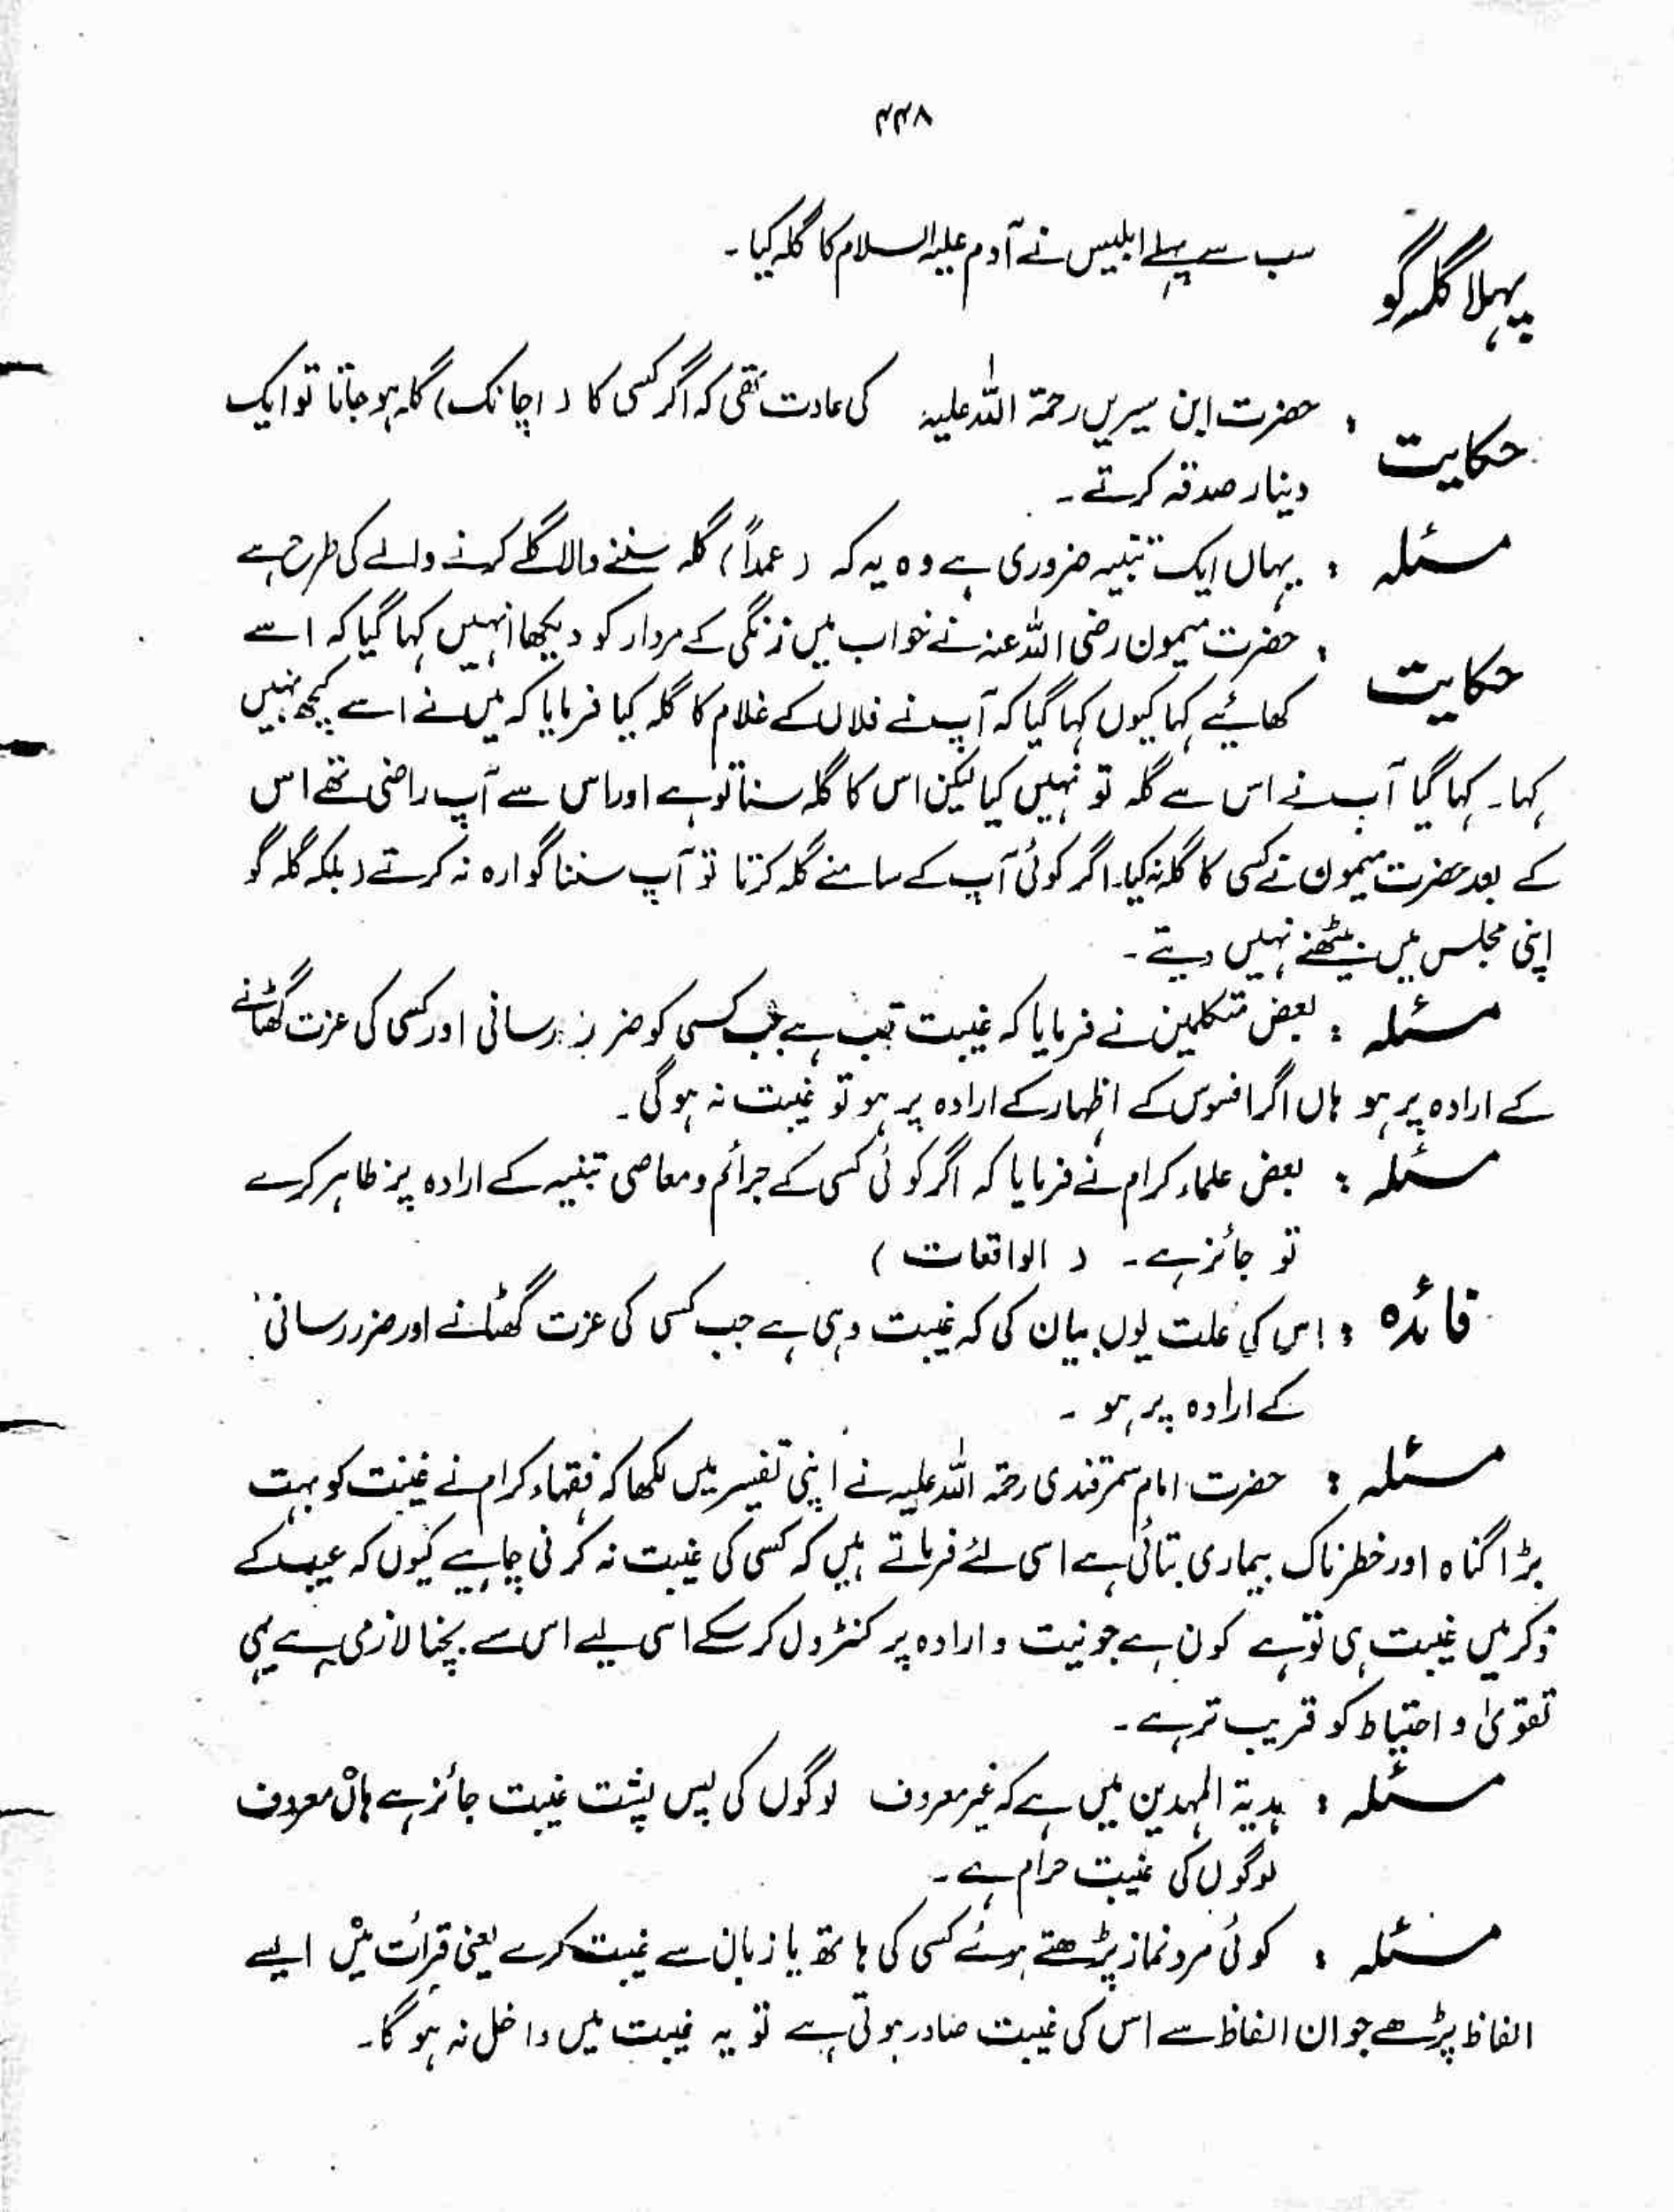 ۴۴۸
پہلا گلہ گو سب سے پہلے ابلیس نے آدم علیہ السلام کا گلہ کیا۔
حکایت : حضرت ابن سیریں رحمۃ اللہ علیہ کی عادت تھی کہ اگر کسی کا (اچانک) گلہ ہو جاتا تو ایک
دینار صدقہ کرتے۔
مسئلہ : یہاں ایک تنبیہ ضروری ہے وہ یہ کہ (عمداً) گلہ سننے والا گلے کرنے والے کی طرح ہے
حکایت : حضرت میمون رضی اللہ عنہ نے خواب میں زنگی کے مردار کو دیکھا انہیں کہا گیا کہ اسے
کھائیے کہا کیوں کہا گیا کہ آپ نے فلاں کے غلام کا گلہ کیا فرمایا کہ میں نے اسے کچھ نہیں
کہا۔ کہا گیا آپ نے اس سے گلہ تو نہیں کیا لیکن اس کا گلہ سنا تو ہے اور اس سے آپ راضی تھے اس
کے بعد حضرت میمون نے کسی کا گلہ نہ کیا۔ اگر کوئی آپ کے سامنے گلہ کرتا تو آپ سننا گوارہ نہ کرتے (بلکہ گلہ گو
اپنی مجلس میں بیٹھنے نہیں دیتے۔
مسئلہ : بعض متکلمین نے فرمایا کہ غیبت تب ہے جب کسی کو ضرر رسانی اور کسی کی عزت گھٹانے
کے ارادہ پر ہو ہاں اگر افسوس کے اظہار کے ارادہ پر ہو تو غیبت نہ ہو گی۔
مسئلہ : بعض علماء کرام نے فرمایا کہ اگر کوئی کسی کے جرائم و معاصی تنبیہ کے ارادہ پر ظاہر کرے
تو جائز ہے۔ (الواقعات)
فائدہ : اس کی علت یوں بیان کی کہ غیبت وہی ہے جب کسی کی عزت گھٹانے اور ضرر رسانی
کے ارادہ پر ہو۔
مسئلہ : حضرت امام سمرقندی رحمۃ اللہ علیہ نے اپنی تفسیر میں لکھا کہ فقہاء کرام نے غیبت کو بہت
بڑا گناہ اور خطرناک بیماری بتائی ہے اسی لئے فرماتے ہیں کہ کسی کی غیبت نہ کرنی چاہیے کیوں کہ عیب کے
ذکر میں غیبت ہی تو ہے کون ہے جو نیت و ارادہ پر کنٹرول کر سکے اسی لیے اس سے بچنا لازمی ہے یہی
تقویٰ و احتیاط کو قریب تر ہے۔
مسئلہ : ہدیۃ المہدین میں ہے کہ غیر معروف لوگوں کی پس پشت غیبت جائز ہے ہاں معروف
لوگوں کی غیبت حرام ہے۔
مسئلہ : کوئی مرد نماز پڑھتے ہوئے کسی کی ہاتھ یا زبان سے غیبت کرے یعنی قرأت میں ایسے
الفاظ پڑھے جو ان الفاظ سے اس کی غیبت صادر ہوتی ہے تو یہ غیبت میں داخل نہ ہو گا۔